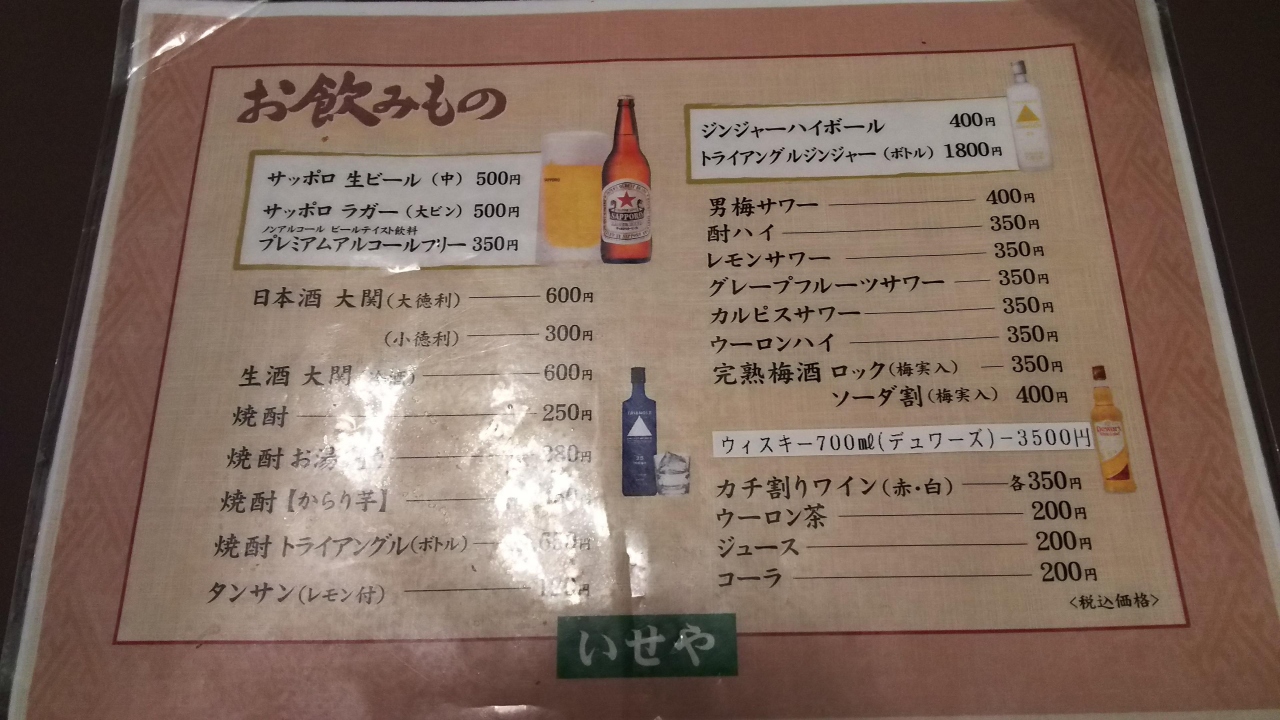 お飲みもの
サッポロ 生ビール (中) 500円
サッポロ ラガー (大ビン) 500円
ノンアルコール ビールテイスト飲料
プレミアムアルコールフリー 350円
日本酒 大関(大徳利) 600円
(小徳利) 300円
生酒 大関 600円
焼酎 250円
焼酎お湯
焼酎【からり芋】
焼酎 トライアングル(ボトル)
タンサン(レモン付)
SAPPORO
ジンジャーハイボール 400円
トライアングルジンジャー (ボトル) 1800円
男梅サワー 400円
酎ハイ 350円
レモンサワー 350円
グレープフルーツサワー 350円
カルピスサワー 350円
ウーロンハイ 350円
完熟梅酒 ロック(梅実入) 350円
ソーダ割(梅実入) 400円
ウィスキー700㎖(デュワーズ)-3500円
カチ割りワイン(赤・白) 各350円
ウーロン茶 200円
ジュース 200円
コーラ 200円
<税込価格>
いせや